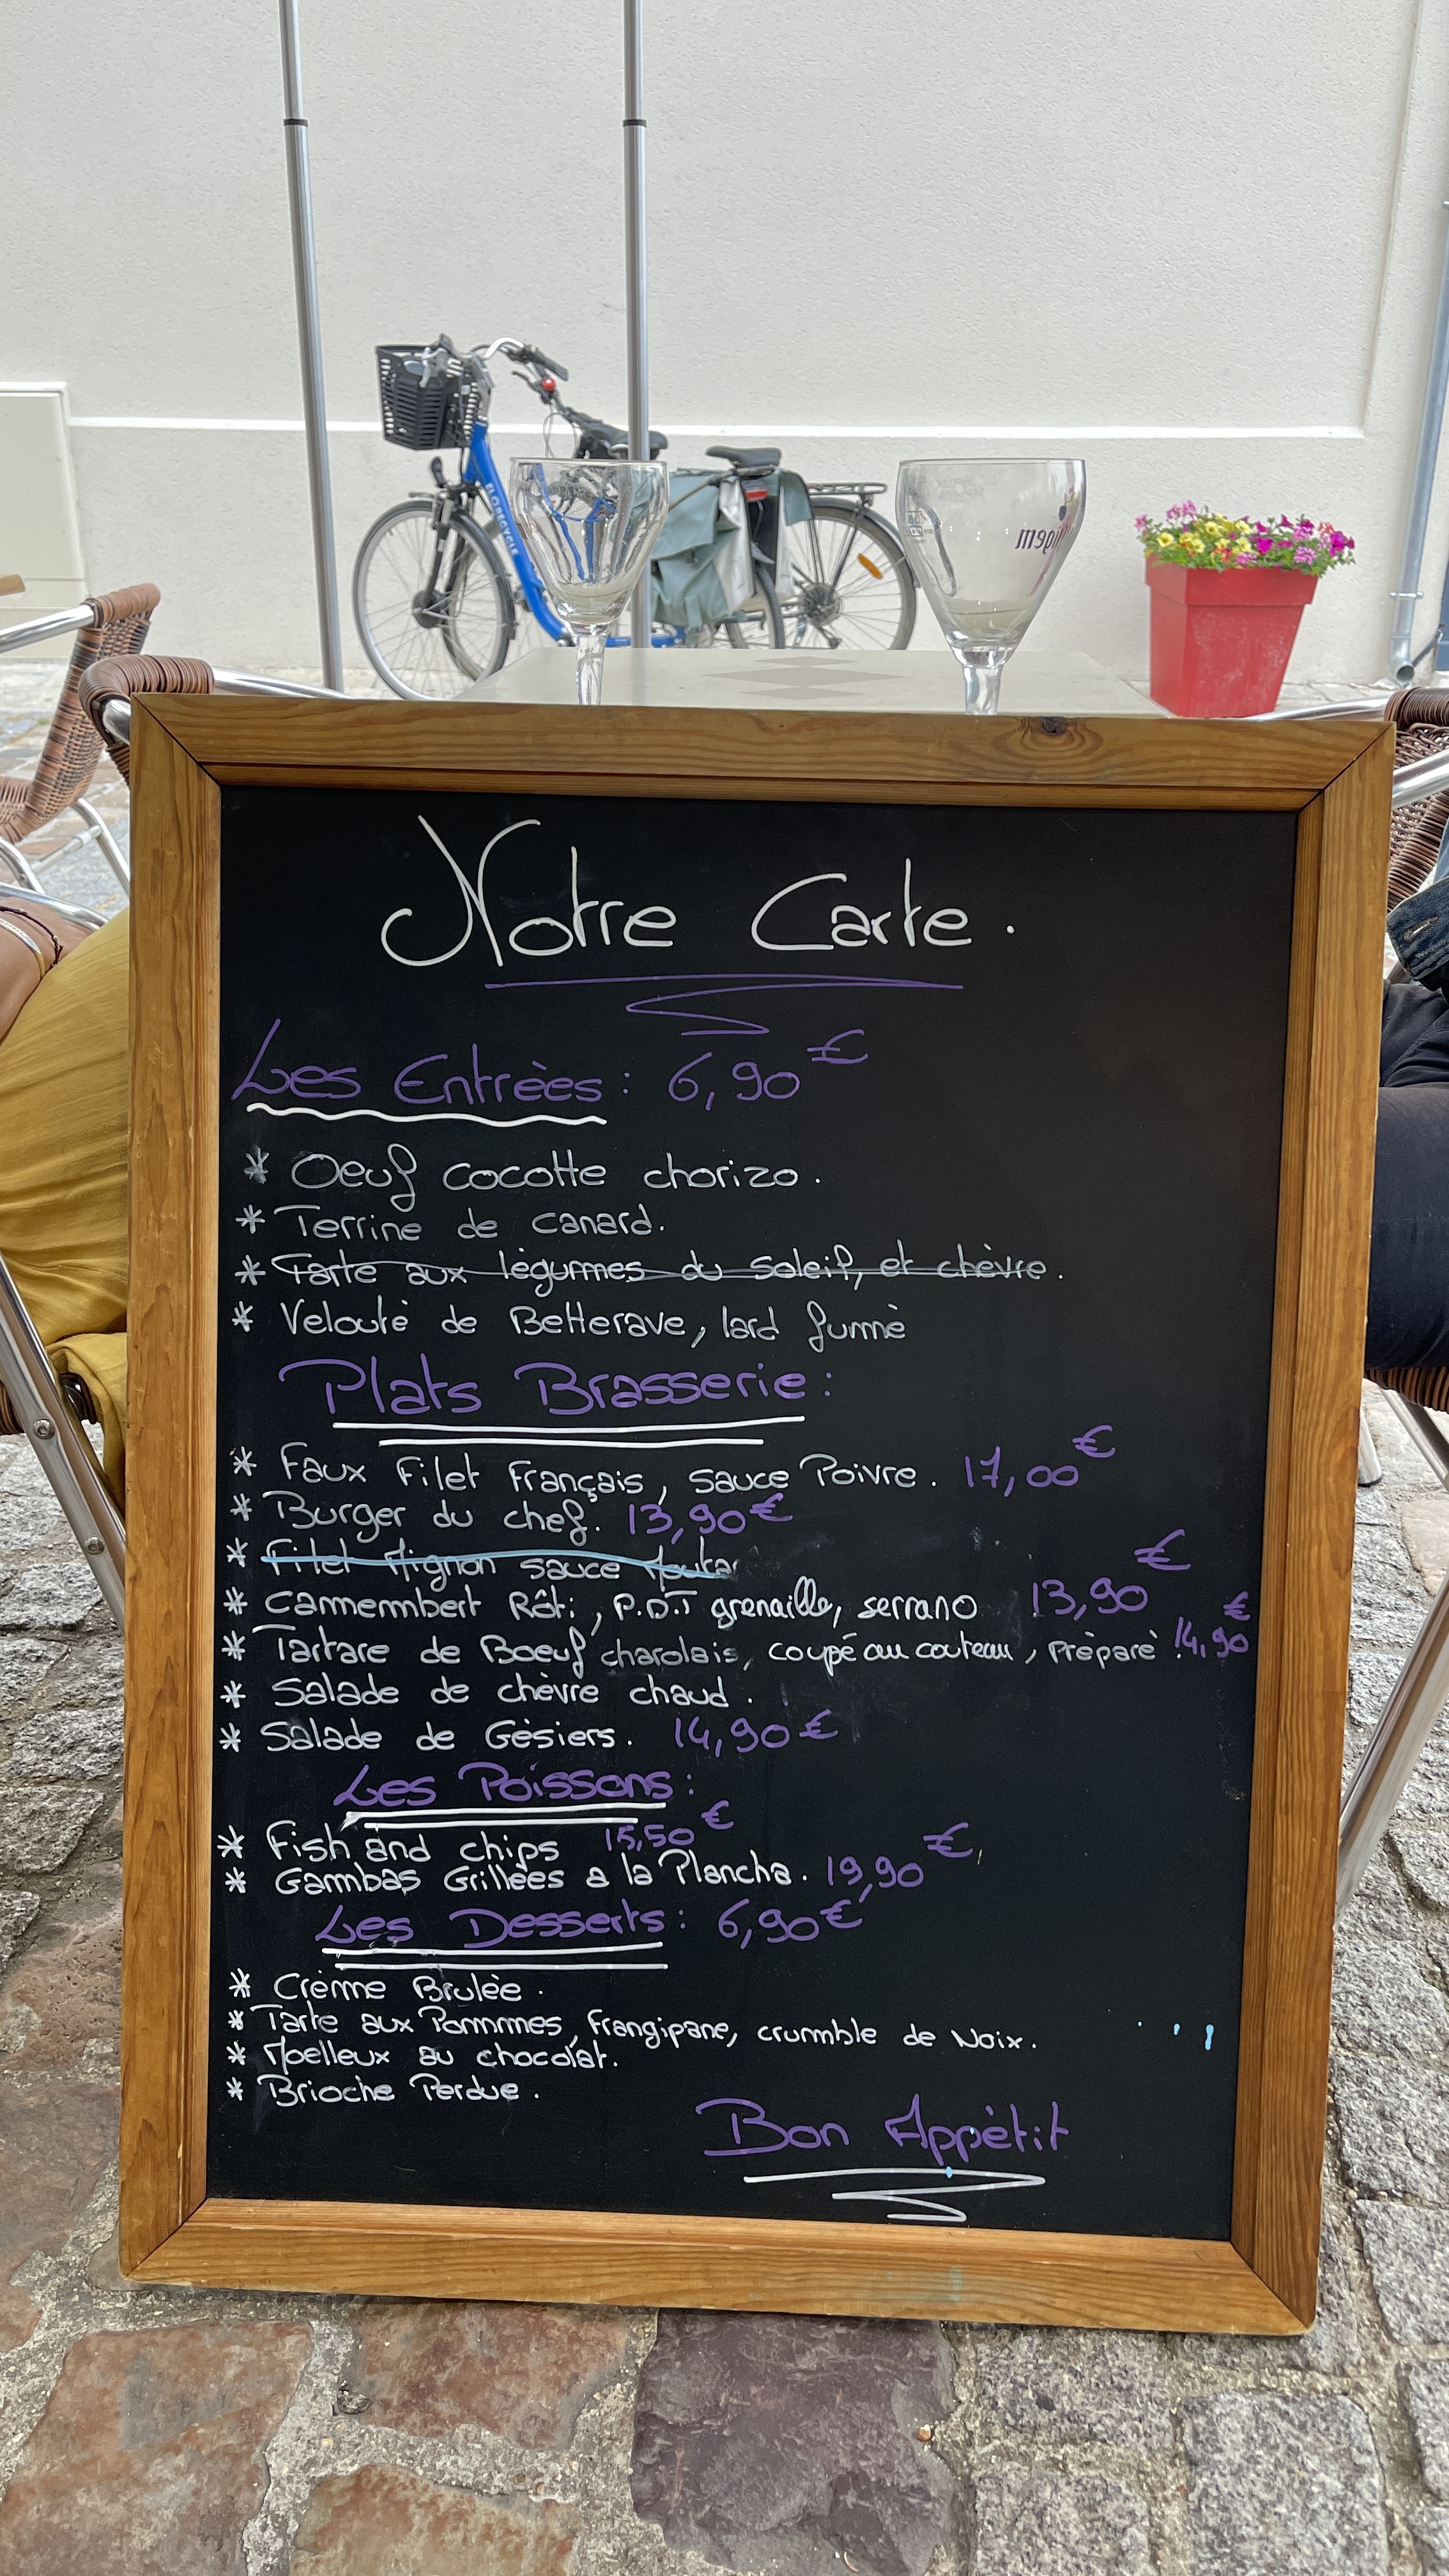 FLORECYCLE
Notre Carte.
Les Entrèes : 6,90€
* Oeuf cocotte chorizo.
* Terrine de canard.
* Tarte aux lègumes du Soleil, et chèvre.
* Veloutè de Betterave, lard fumè
Plats Brasserie :
* Faux Filet Français, sauce Poivre. 17,00€
* Burger du chef. 13,90€
* Filet Mignon sauce
* Camembert Rôti, P.D.T grenaille, serrano 13,90€
* Tartare de Boeuf charolais, coupé au couteau, Prèparè. 14,90€
* Salade de chèvre chaud.
* Salade de Gèsiers. 14,90€
Les Poissons :
* Fish and chips 15,50€
* Gambas Grillèes a la Plancha. 19,90€
Les Desserts : 6,90€
* Crème Brulèe.
* Tarte aux Pommes, Frangipane, crumble de Noix.
* Moelleux au chocolat.
* Brioche Perdue.
Bon Appètit